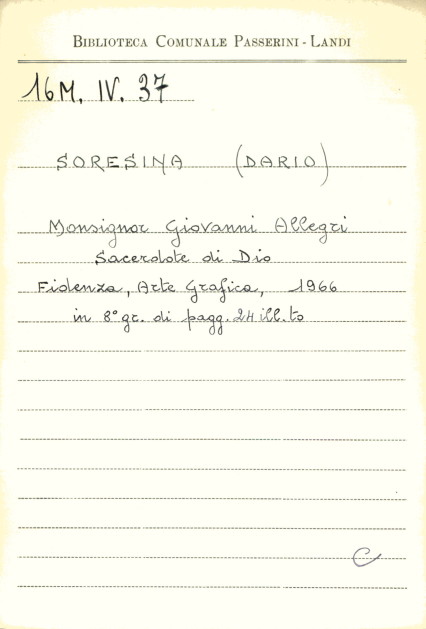 BIBLIOTECA COMUNALE PASSERINI - LANDI
16M. IV. 37
SORESINA (DARIO)
Monsignor Giovanni Allegri
Sacerdote di Dio
Fidenza, Arte Grafica, 1966
in 8° gr. di pagg. 24 ill.to
C